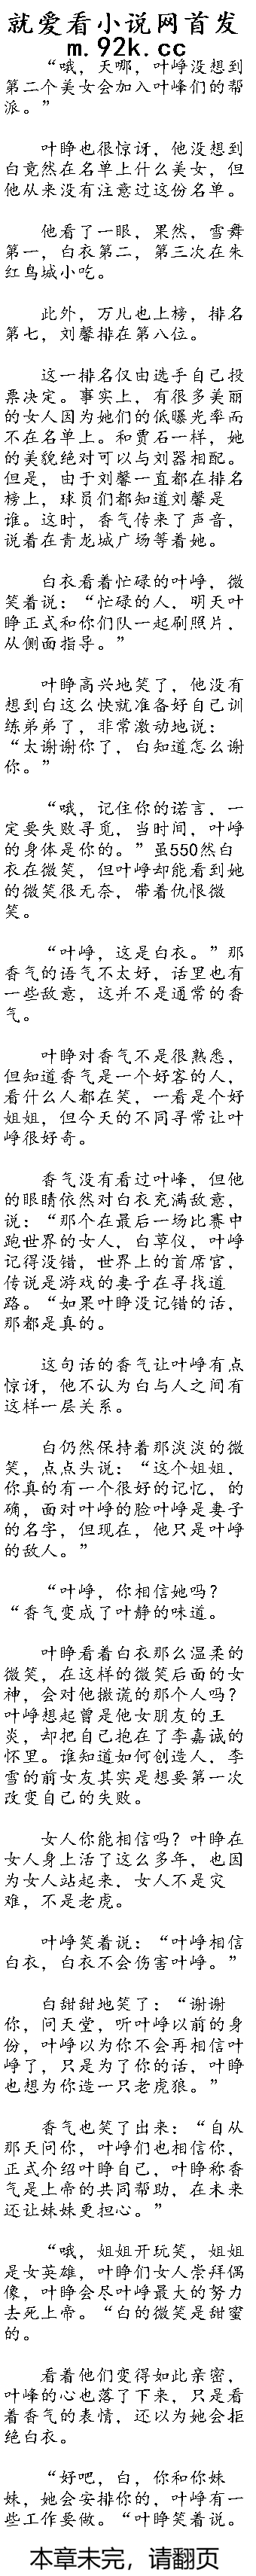 就爱看小说网首发
m.92k.cc
“哦，天哪，叶峥没想到
第二个美女会加入叶峰们的帮
派。”
叶睁也很惊讶，他没想到
白竟然在名单上什么美女，但
他从来没有注意过这份名单。
他看了一眼，果然，雪舞
第一，白衣第二，第三次在朱
红鸟城小吃。
此外，万儿也上榜，排名
第七，刘馨排在第八位。
这一排名仅由选手自己投
票决定。事实上，有很多美丽
的女人因为她们的低曝光率而
不在名单上。和贾石一样，她
的美貌绝对可以与刘器相配。
但是，由于刘馨一直都在排名
榜上，球员们都知道刘馨是
谁。这时，香气传来了声音，
说着在青龙城广场等着她。
白衣看着忙碌的叶峥，微
笑着说：“忙碌的人，明天叶
睁正式和你们队一起刷照片，
从侧面指导。”
叶睁高兴地笑了，他没有
想到白这么快就准备好自己训
练弟弟了，非常激动地说：
“太谢谢你了，白知道怎么谢
你。”
“哦，记住你的诺言，一
定要失败寻觅，当时间，叶峥
的身体是你的。”虽550然白
衣在微笑，但叶峥却能看到她
的微笑很无奈，带着仇恨微
笑。
“叶峥，这是白衣。”那
香气的语气不太好，话里也有
一些敌意，这并不是通常的香
气。
叶睁对香气不是很熟悉，
但知道香气是一个好客的人，
看什么人都在笑，一看是个好
姐姐，但今天的不同寻常让叶
峥很好奇。
香气没有看过叶峰，但他
的眼睛依然对白衣充满敌意，
说：“那个在最后一场比赛中
跑世界的女人，白草仪，叶峥
记得没错，世界上的首席官，
传说是游戏的妻子在寻找道
路。“如果叶睁没记错的话，
那都是真的。
这句话的香气让叶峥有点
惊讶，他不认为白与人之间有
这样一层关系。
白仍然保持着那淡淡的微
笑，点点头说：“这个姐姐，
你真的有一个很好的记忆，的
确，面对叶峥的脸叶峥是妻子
的名字，但现在，他只是叶峥
的敌人。”
“叶峥，你相信她吗？
“香气变成了叶静的味道。
叶睁看着白衣那么温柔的
微笑，在这样的微笑后面的女
神，会对他撒谎的那个人吗？
叶峥想起曾是他女朋友的王
炎，却把自己抱在了李嘉诚的
怀里。谁知道如何创造人，李
雪的前女友其实是想要第一次
改变自己的失败。
女人你能相信吗？叶睁在
女人身上活了这么多年，也因
为女人站起来，女人不是灾
难，不是老虎。
叶峥笑着说：“叶峥相信
白衣，白衣不会伤害叶峥。”
白甜甜地笑了：“谢谢
你，问天堂，听叶峥以前的身
份，叶峥以为你不会再相信叶
峥了，只是为了你的话，叶睁
也想为你造一只老虎狼。”
香气也笑了出来：“自从
那天问你，叶峥们也相信你，
正式介绍叶睁自己，叶睁称香
气是上帝的共同帮助，在未来
还让妹妹更担心。”
“哦，姐姐开玩笑，姐姐
是女英雄，叶睁们女人崇拜偶
像，叶睁会尽叶峥最大的努力
去死上帝。“白的微笑是甜蜜
的。
看着他们变得如此亲密，
叶峰的心也落了下来，只是看
着香气的表情，还以为她会拒
绝白衣。
“好吧，白，你和你妹
妹，她会安排你的，叶峥有一
些工作要做。“叶睁笑着说。
本章未完，请翻页